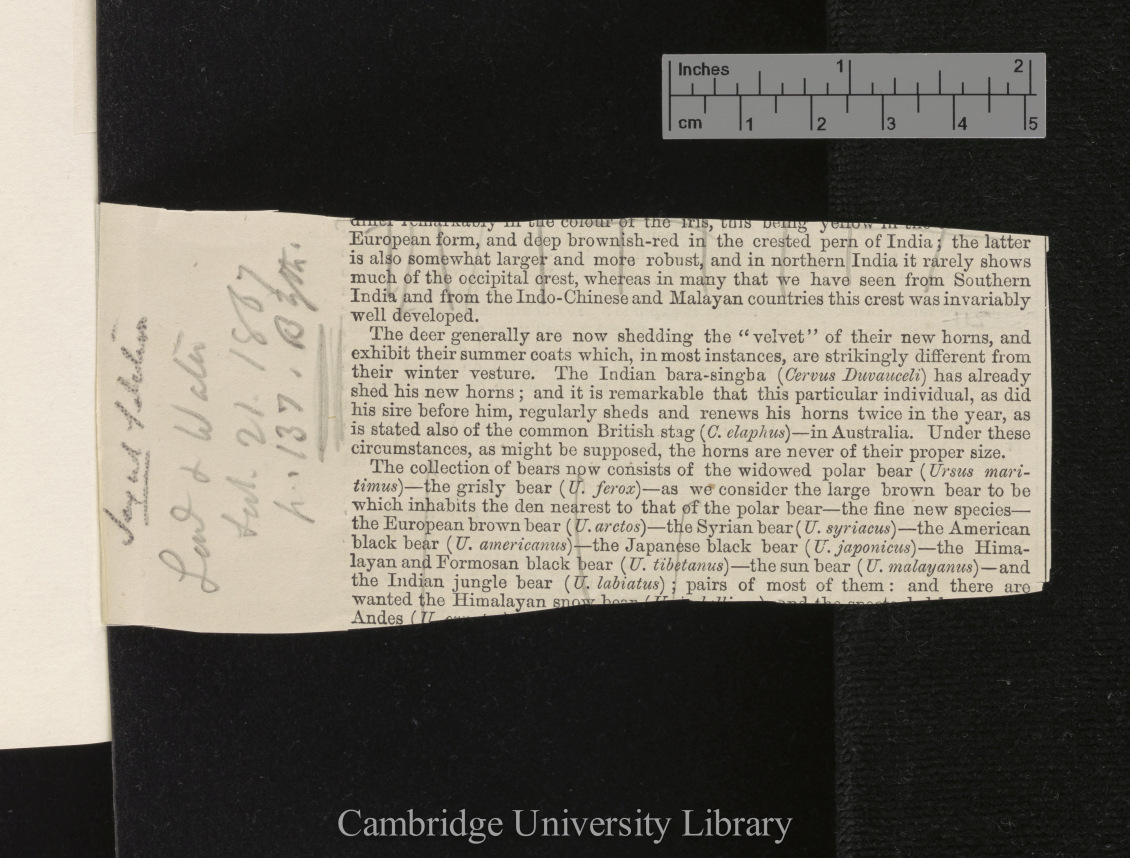 Inches 1 2
cm 1 2 3 4 5
Sexual Selection
Land & Water
Sept. 21. 1867
p. 137. Blyth.
differ remarkably in the colour of the iris, this being yellow in the
European form, and deep brownish-red in the crested pern of India; the latter
is also somewhat larger and more robust, and in northern India it rarely shows
much of the occipital crest, whereas in many that we have seen from Southern
India and from the Indo-Chinese and Malayan countries this crest was invariably
well developed.
The deer generally are now shedding the "velvet" of their new horns, and
exhibit their summer coats which, in most instances, are strikingly different from
their winter vesture. The Indian bara-singha (Cervus Duvauceli) has already
shed his new horns; and it is remarkable that this particular individual, as did
his sire before him, regularly sheds and renews his horns twice in the year, as
is stated also of the common British stag (C. elaphus)—in Australia. Under these
circumstances, as might be supposed, the horns are never of their proper size.
The collection of bears now consists of the widowed polar bear (Ursus mari-
timus)—the grisly bear (U. ferox)—as we consider the large brown bear to be
which inhabits the den nearest to that of the polar bear—the fine new species—
the European brown bear (U. arctos)—the Syrian bear (U. syriacus)—the American
black bear (U. americanus)—the Japanese black bear (U. japonicus)—the Hima-
layan and Formosan black bear (U. tibetanus)—the sun bear (U. malayanus)—and
the Indian jungle bear (U. labiatus); pairs of most of them: and there are
wanted the Himalayan snow bear (U. and the
Andes (U.
Cambridge University Library